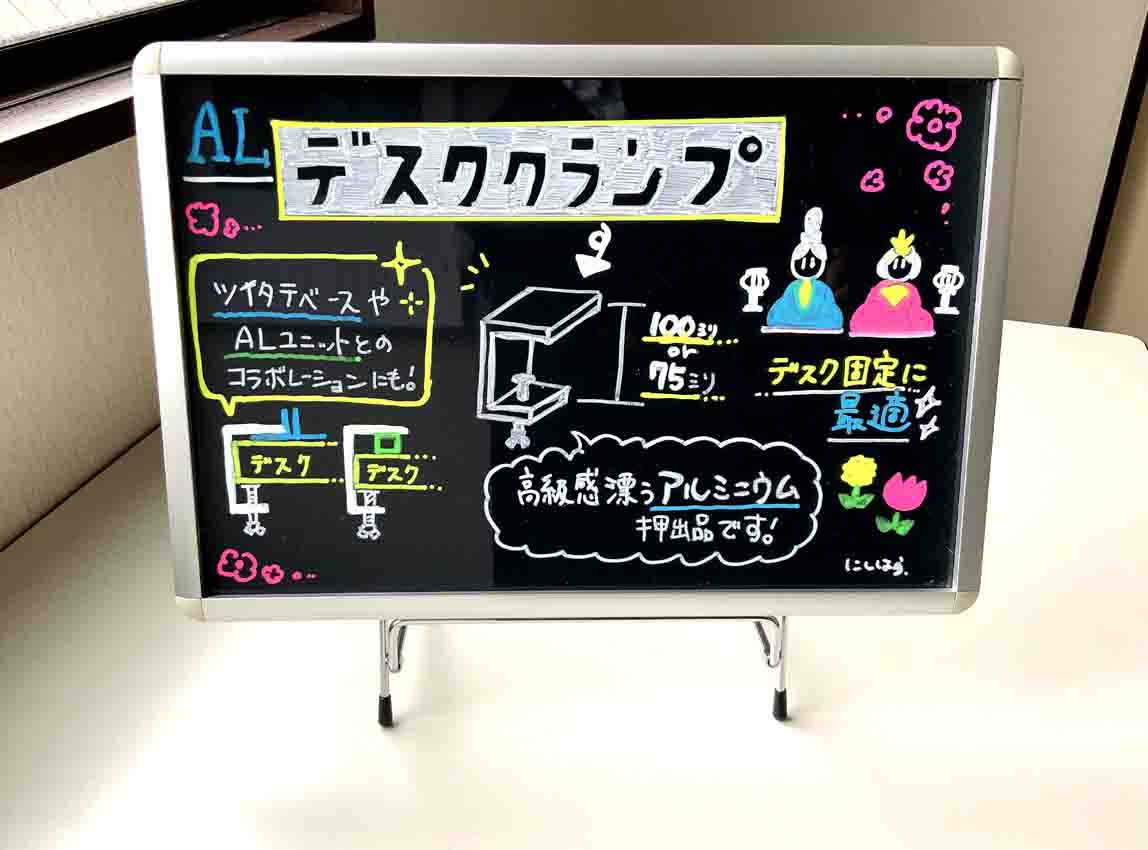 AL デスククランプ
ツイタテベースや
ALユニットとの
コラボレーションにも!
デスク
デスク
100ミリ
or
75ミリ
デスク固定に
最適
高級感漂うアルミニウム
押出品です!
にしはら